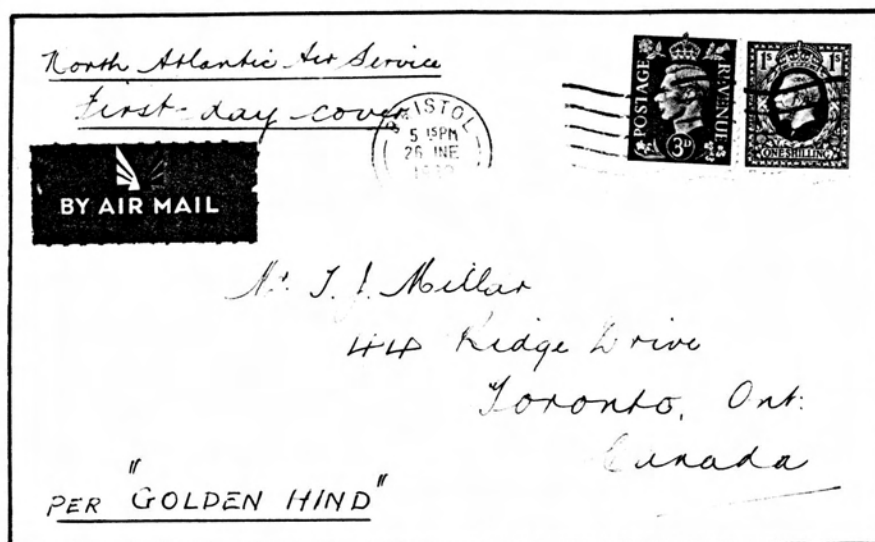 North Atlantic Air Service
First-day cover
BRISTOL
5 15PM
26 JNE
POSTAGE REVENUE
3D
1S 1S
ONE SHILLING
BY AIR MAIL
Mr. T. J. Millar
44 Ridge Drive
Toronto, Ont:
Canada
PER "GOLDEN HIND"